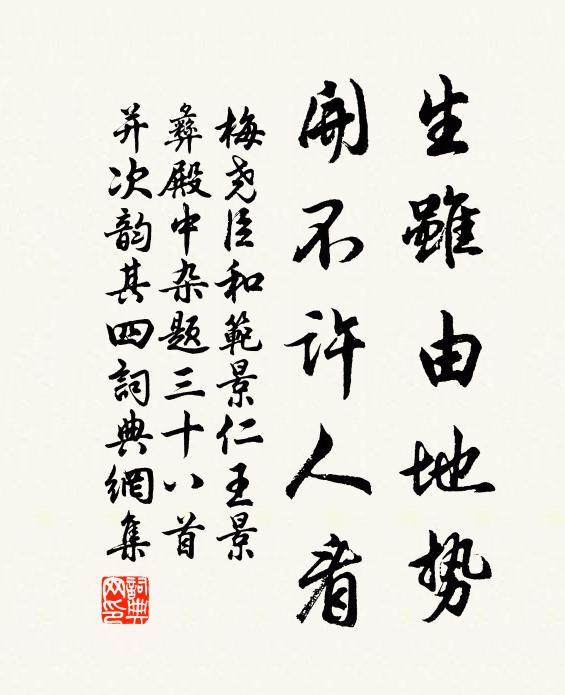 生雖由地势
開不許人看
梅尧臣和範景仁王景
彝殿中杂题三十八首
并次韵其四詞典網集
詞典网印